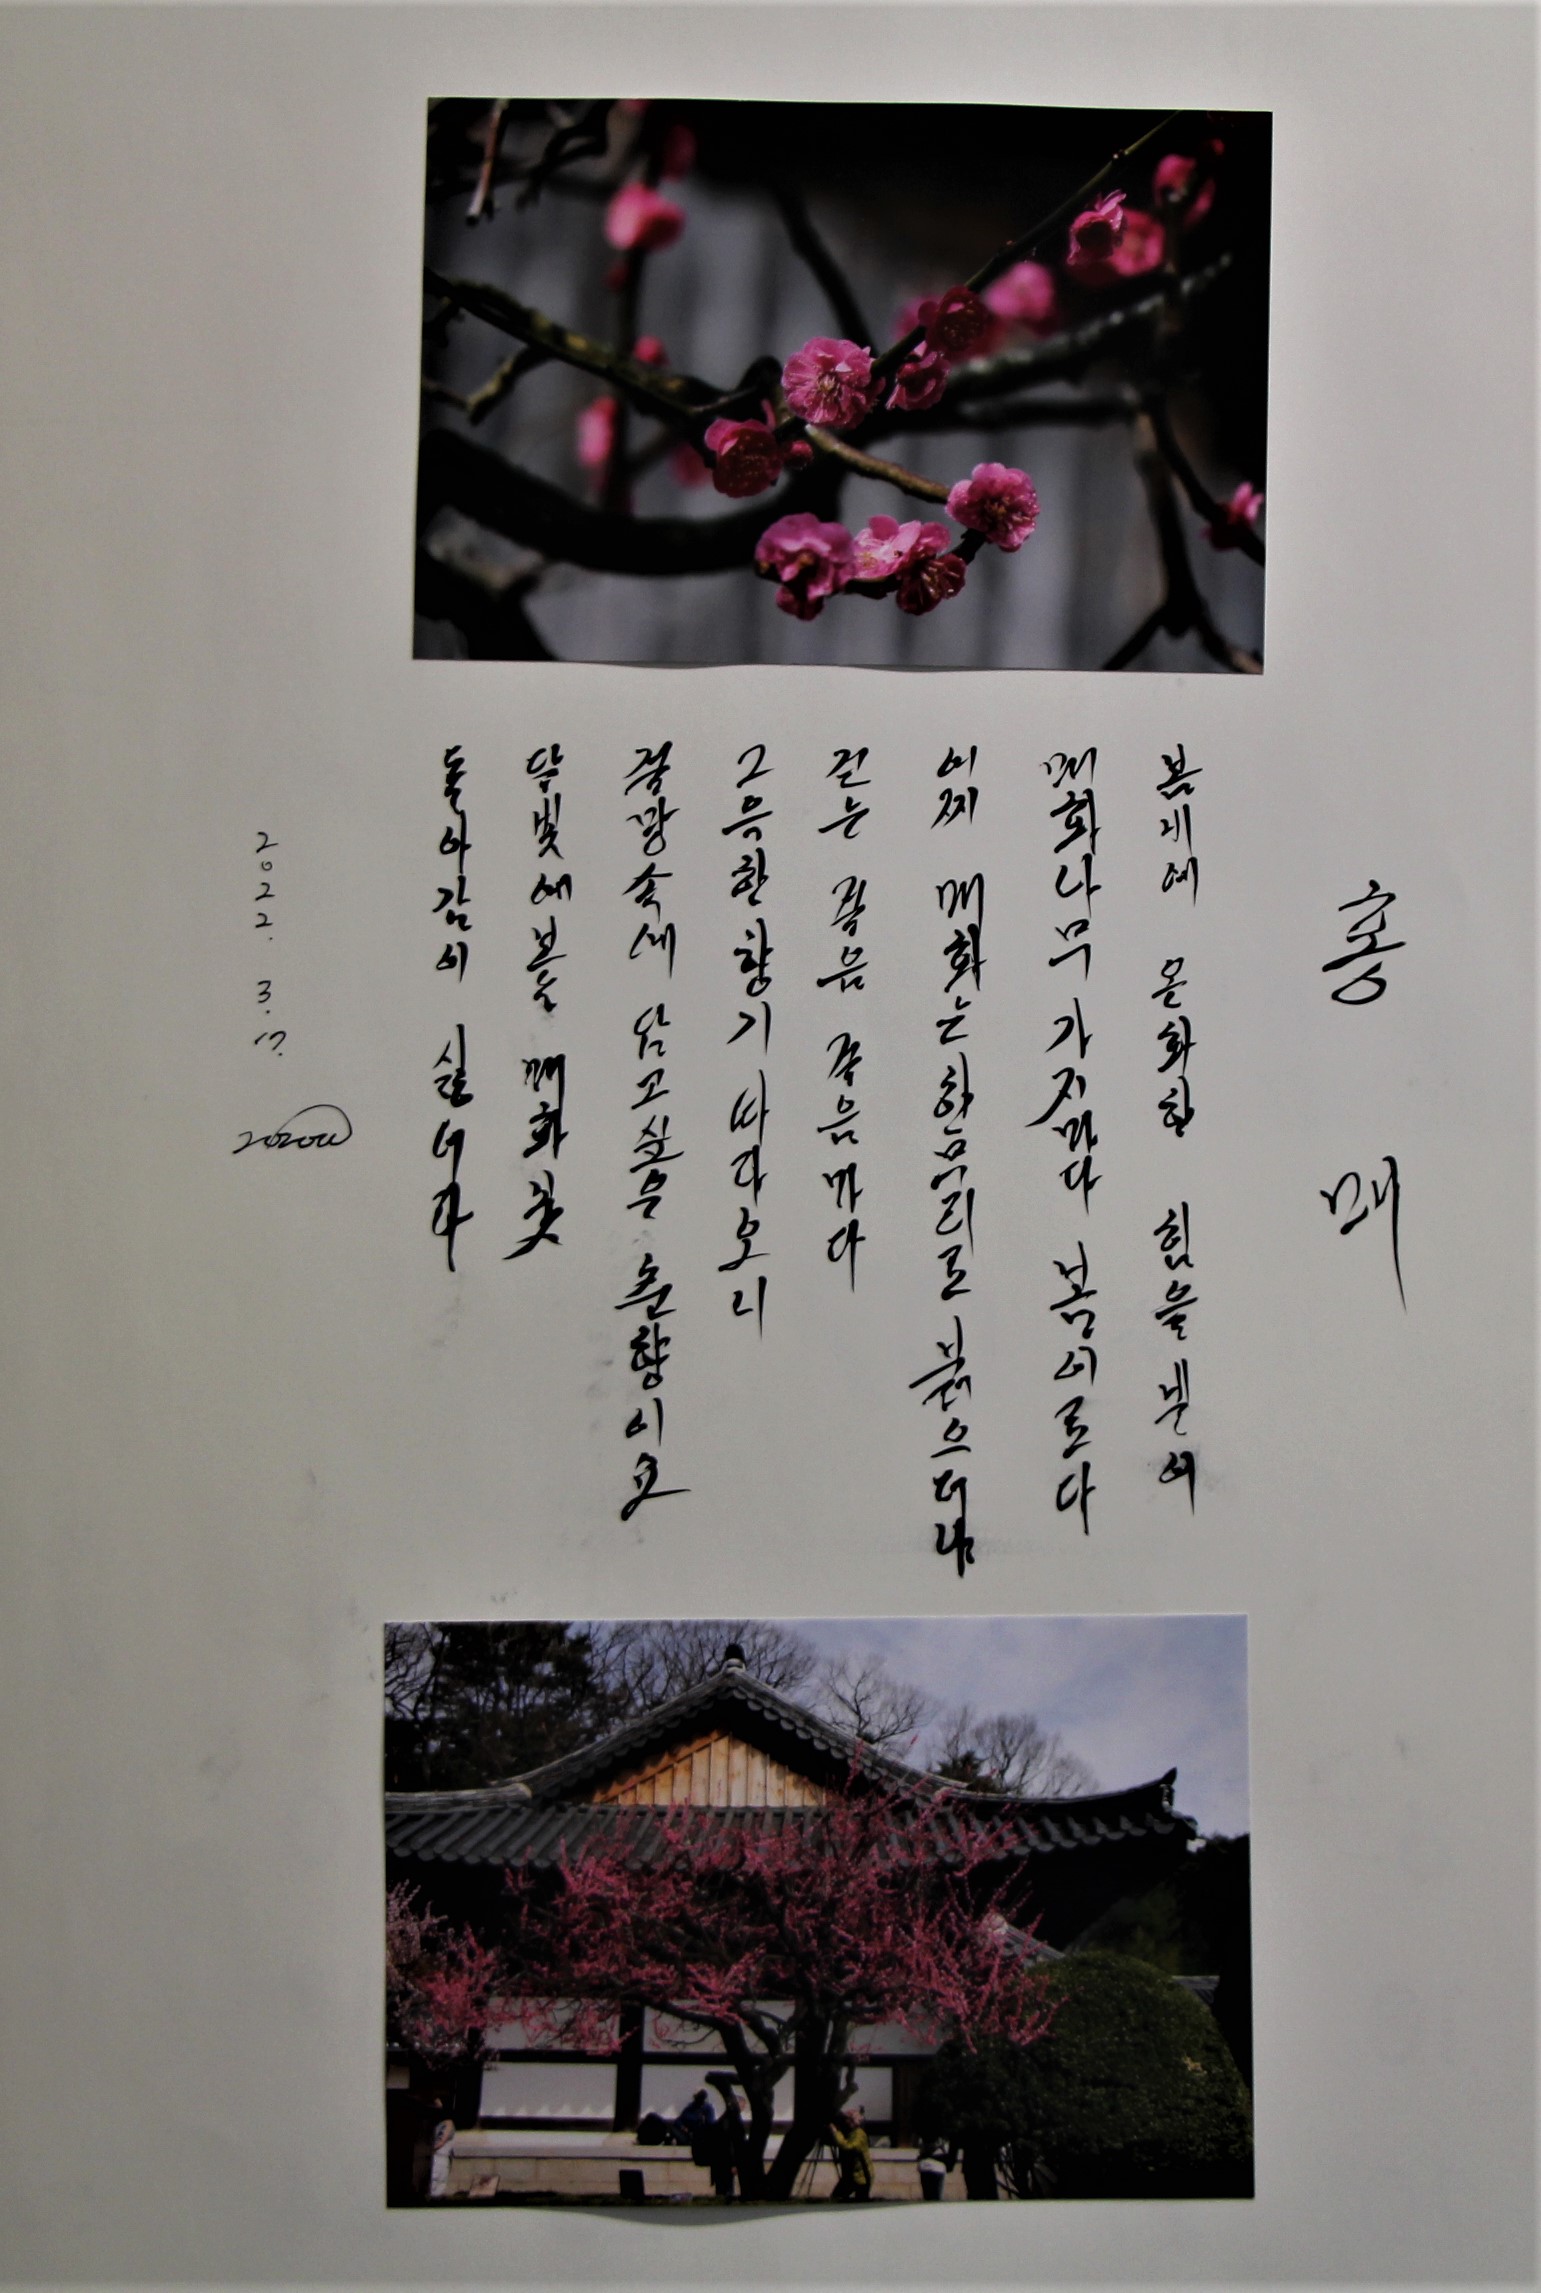 홍 매
봄비에 온화한 힘을 빌어
매화나무 가지마다 봄이로다
어찌 매화는 한무리로 붉으더냐
걷는 걸음 걸음마다
그윽한 향기 따라오니
절망속세 담고싶은 춘향이요
달빛에 보는 매화꽃
돌아감이 싫더라
2022. 3. 17.